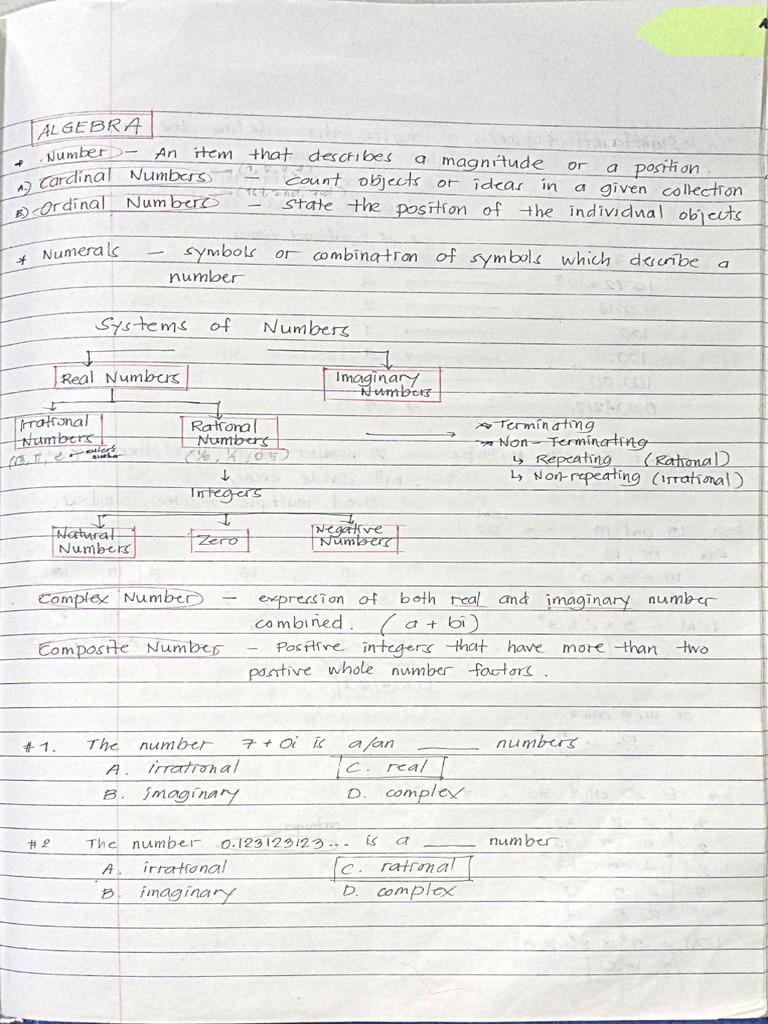 ALGEBRA
* Number - An item that describes a magnitude or a position.
A.) Cardinal Numbers - count objects or ideas in a given collection
B.) Ordinal Numbers - state the position of the individual objects
* Numerals - symbols or combination of symbols which describe a
number
Systems of Numbers
Real Numbers
Imaginary Numbers
Irrational Numbers
Rational Numbers
Terminating
Non-Terminating
↳ Repeating (Rational)
↳ Non-repeating (Irrational)
π, e - euler's number
Integers
Natural Numbers
Zero
Negative Numbers
Complex Number - expression of both real and imaginary number
combined. (a + bi)
Composite Number - Positive integers that have more than two
positive whole number factors.
#1. The number 7+0i is a/an ____ numbers
A. irrational C. real
B. imaginary D. complex
#2 The number 0.123123123... is a ____ number.
A. irrational C. rational
B. imaginary D. complex